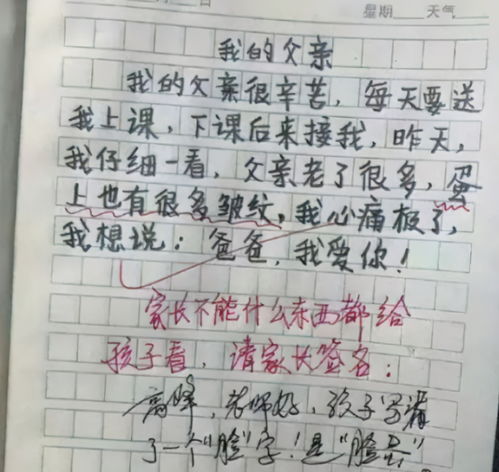 星期 天气
我的父亲
我的父亲很辛苦，每天要送
我上课，下课后来接我，昨天，
我仔细一看，父亲老了很多，蛋
上也有很多皱纹，我心痛极了，
我想说：爸爸，我爱你！
家长不能什么东西都给
孩子看，请家长签名：
高峰，老师好，孩子写漏
了一个"脸"字！是"脸蛋"